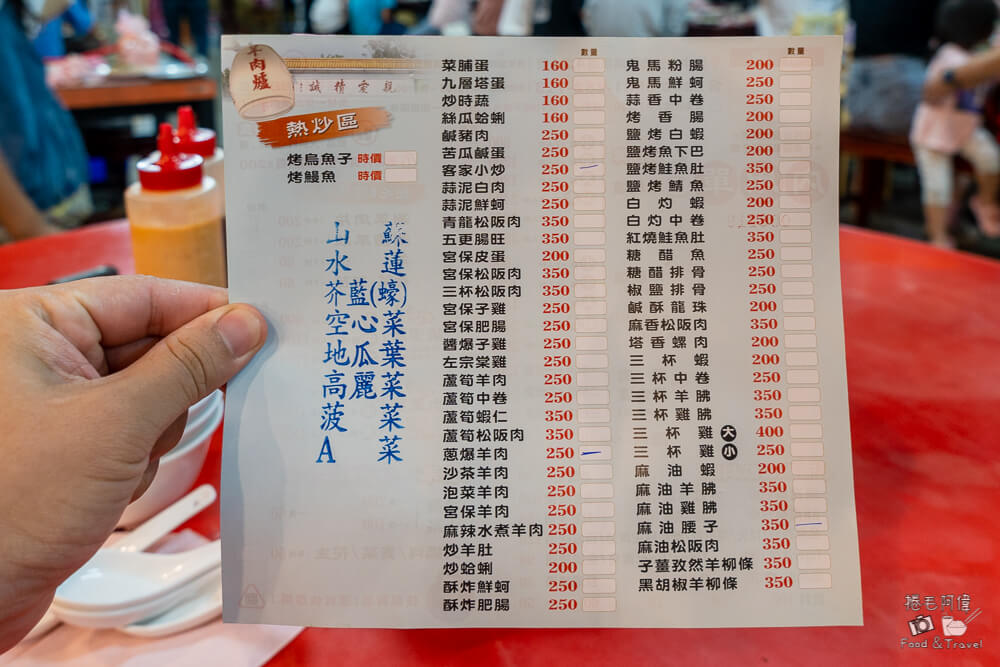 羊肉爐
親愛精誠
熱炒區
烤烏魚子 時價
烤鰻魚 時價
山 蘇
水 蓮
芥藍(蠔)
空心菜
地瓜葉
高麗菜
菠 菜
A 菜
數量
菜脯蛋 160
九層塔蛋 160
炒時蔬 160
絲瓜蛤蜊 160
鹹豬肉 250
苦瓜鹹蛋 250
客家小炒 250
蒜泥白肉 250
蒜泥鮮蚵 250
青龍松阪肉 350
五更腸旺 350
宮保皮蛋 200
宮保松阪肉 350
三杯松阪肉 350
宮保子雞 250
宮保肥腸 250
醬爆子雞 250
左宗棠雞 250
蘆筍羊肉 250
蘆筍中卷 250
蘆筍蝦仁 350
蘆筍松阪肉 350
蔥爆羊肉 250
沙茶羊肉 250
泡菜羊肉 250
宮保羊肉 250
麻辣水煮羊肉 250
炒羊肚 250
炒蛤蜊 200
酥炸鮮蚵 250
酥炸肥腸 250
數量
鬼馬粉腸 200
鬼馬鮮蚵 250
蒜香中卷 250
烤香腸 200
鹽烤白蝦 200
鹽烤魚下巴 200
鹽烤鮭魚肚 350
鹽烤鯖魚 250
白灼蝦 200
白灼中卷 250
紅燒鮭魚肚 350
糖醋魚 250
糖醋排骨 250
椒鹽排骨 250
鹹酥龍珠 200
麻香松阪肉 350
塔香螺肉 200
三杯蝦 200
三杯中卷 250
三杯羊腩 350
三杯雞腩 350
三杯雞大 400
三杯雞小 250
麻油蝦 200
麻油羊腩 350
麻油雞腩 350
麻油腰子 350
麻油松阪肉 350
子薑孜然羊柳條 350
黑胡椒羊柳條 350
捲毛阿偉
Food & Travel